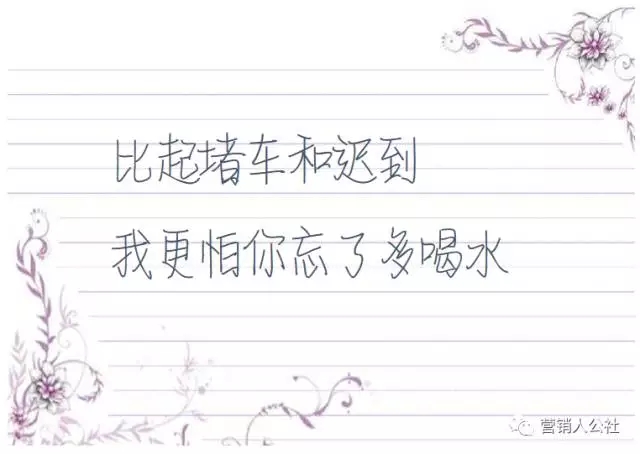 比起堵车和迟到
我更怕你忘了多喝水
营销人公社